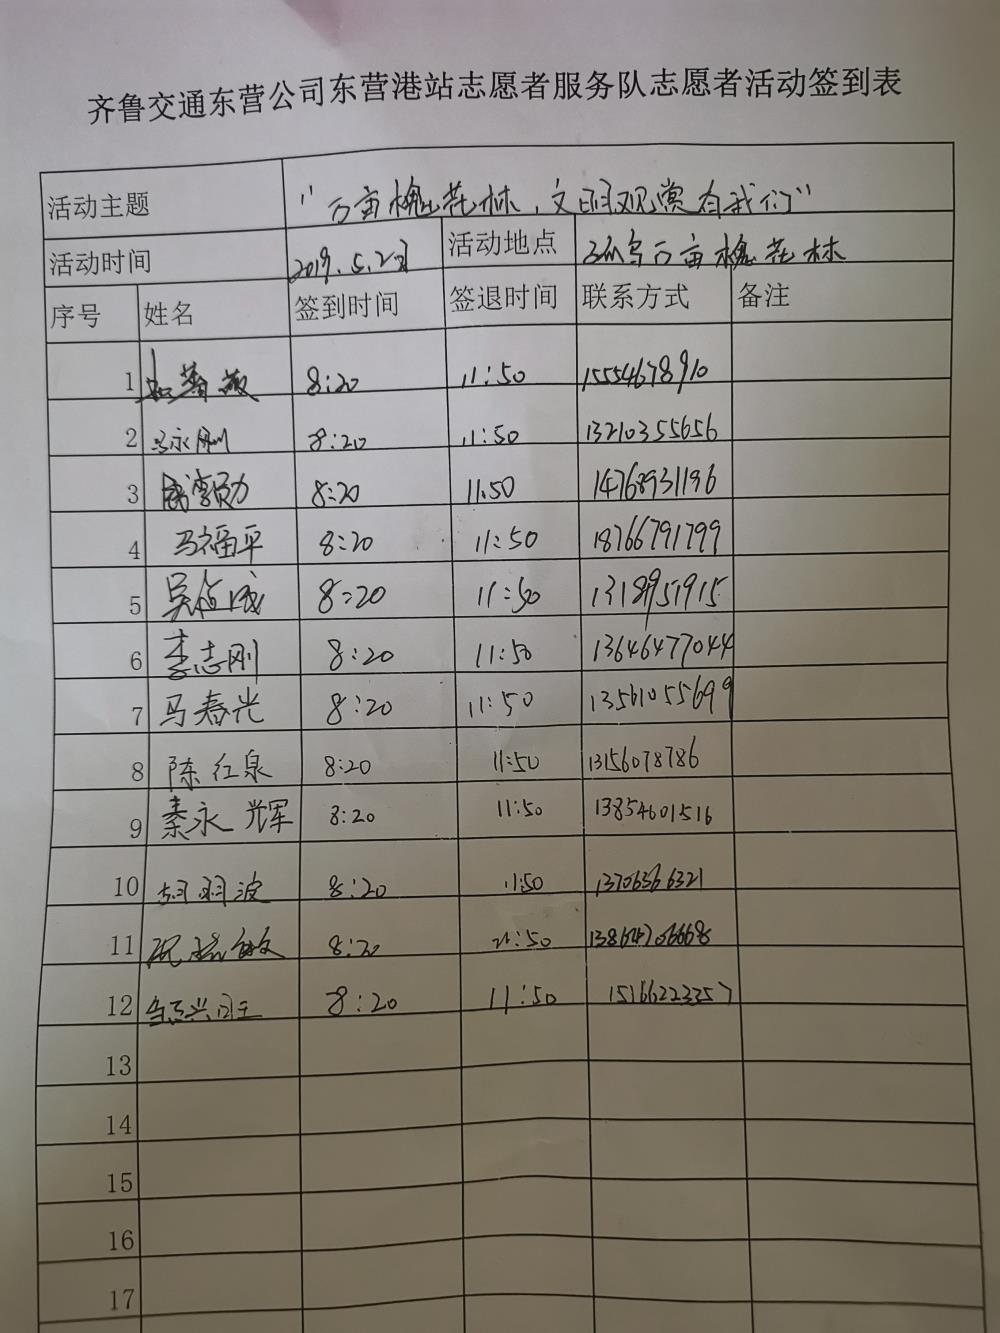 齐鲁交通东营公司东营港站志愿者服务队志愿者活动签到表
活动主题 "万亩槐花林,文明观赏有我们"
活动时间 2019.5.2 活动地点 孤岛万亩槐花林
序号 姓名 签到时间 签退时间 联系方式 备注
1 8:20 11:50 15554678910
2 马永刚 8:20 11:50 13210355656
3 8:20 11:50 14768931196
4 马福平 8:20 11:50 18766791799
5 吴 成 8:20 11:50
6 李志刚 8:20 11:50 13646477044
7 马春光 8:20 11:50 13561055699
8 陈红泉 8:20 11:50 13156078786
9 秦永辉 8:20 11:50 13854601516
10 胡羽波 8:20 11:50 13706366321
11 8:20 11:50
12 8:20 11:50 15166223357
13
14
15
16
17